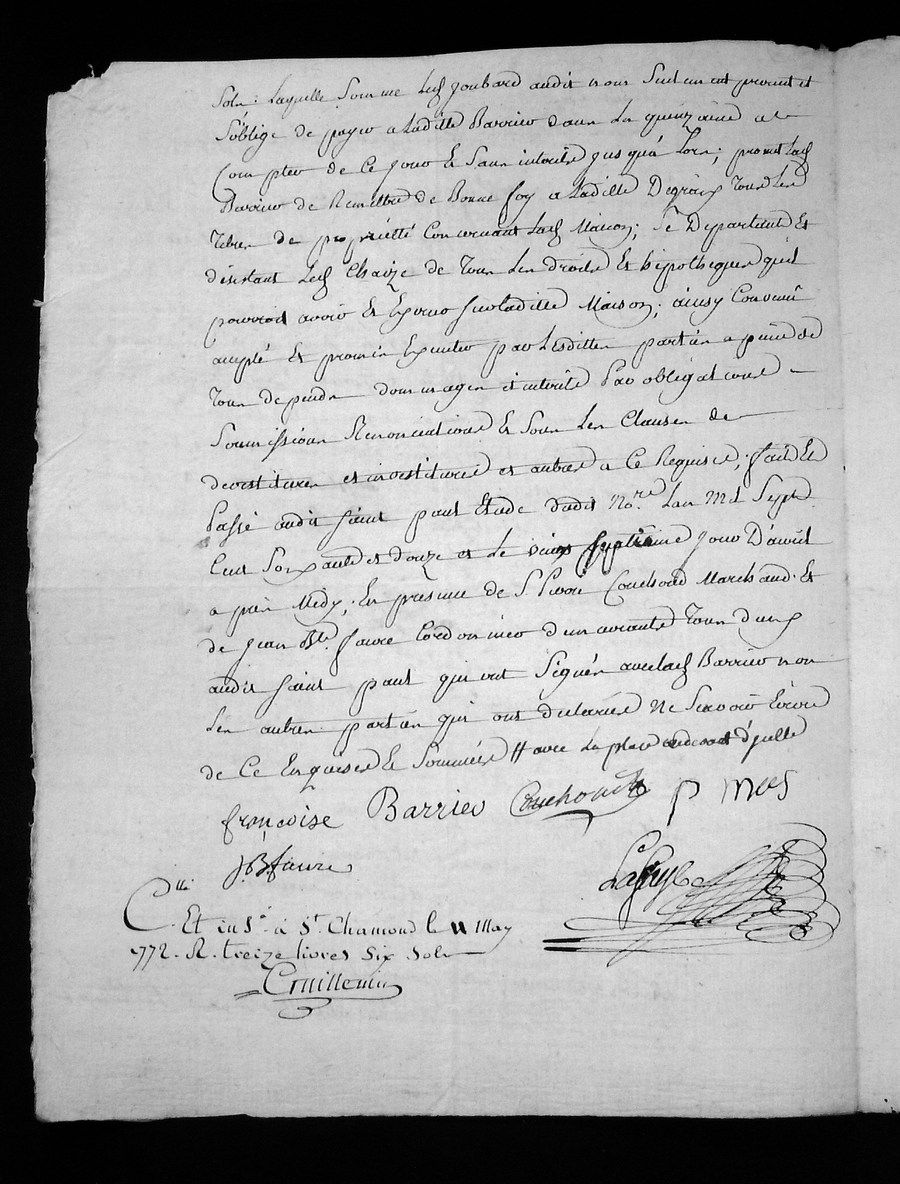 Sols; Laquelle Somme Led Goubard audit nom Seulement promet et
S'oblige de payer a Ladille Barrier dans La quinzaine a
Compter de Ce jour Et Sans interets jusqu'a Lors; promet Lad
Barrier de Remettre de Bonne foy a Ladille Tous Les
titres de proprietté Concernant Lad Maison; Se Departant Et
désistant Led Chaize de Tous Les droits Et hipotheques qu'il
pourroit avoir Et Exercer sur Ladille Maison; ainsy Convenu
accepté Et promis Executer par Lesdilles parties a peine de
Tous depends dommages et interets Par obligations
Soumissions Renonciations Et Sous Les Clauses de
devestitures et investitures et autres a Ce Requises; fait Et
Passé audit saint paul Etude dudit No.re Lan Mil Sept
Cent Soixante et douze et Le vingt septieme jour D'avril
a près Midy; En presence de S.r Pierre Couchoud Marchand Et
de Jean B.te faure Cordonnier demeurants Tous deux
audit saint paul qui ont Signés avec lad Barrier non
Les autres parties qui ont declarées Ne Scavoir Ecrire
de Ce Enquises Et Sommées # avec La place audevant d'ycelle
françoise Barrier Couchoud p mes
J.B. faure
C.lle
Et ins.é à S.t Chamond le 11 May
1772. R. treize livres six sols